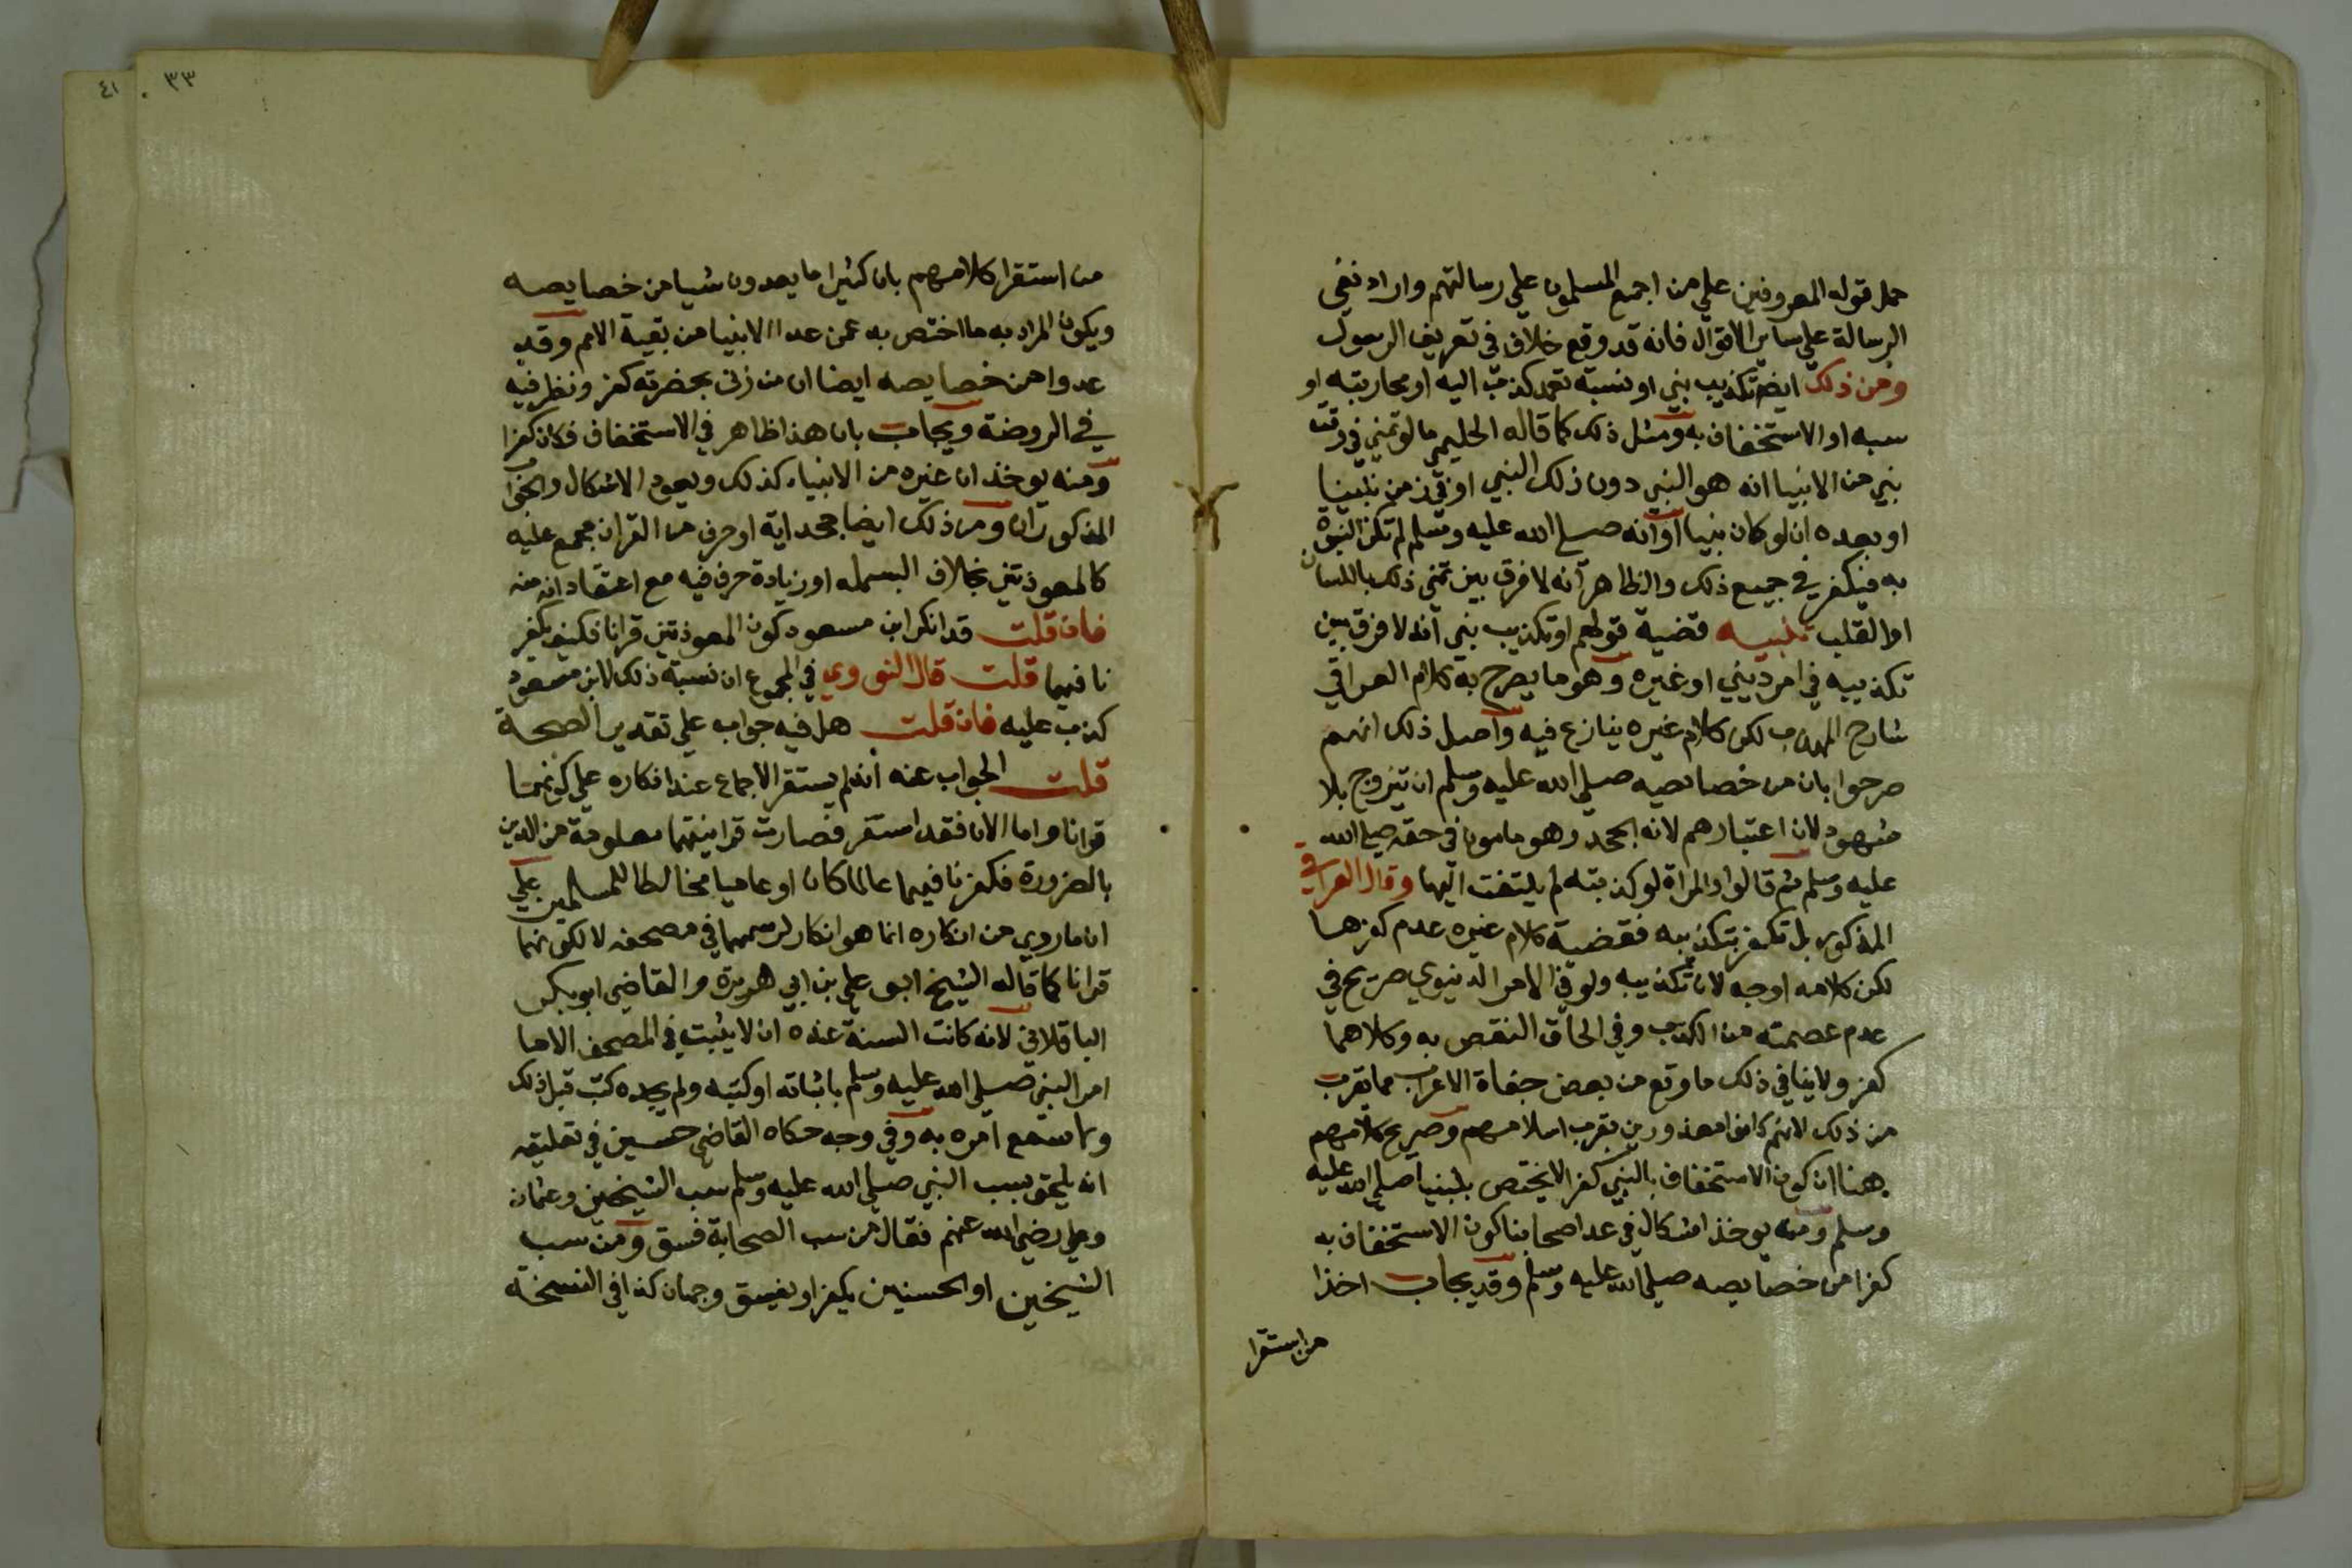 حمل قوله المعروفين علي من اجمع المسلمون علي رسالتهم واراد نفي
الرسالة علي ساير الاقوال فانه قد وقع خلاف في تعريف الرسول
ومن ذلك ايضا تكذيب نبي او نسبة تعمد كذب اليه او محاربته او
سبه او الاستخفاف به ومثل ذلك كما قاله الحليمي ما لو تمني في وقت
نبي من الانبيا انه هو النبي دون ذلك النبي او في زمن نبينا
او بعده ان لو كان نبيا او انه صلي الله عليه وسلم لم تكن النبوة
به فيكفر في جميع ذلك والظاهر انه لا فرق بين تمني ذلك باللسان
او القلب تنبيه قضية قولهم او تكذيب نبي انه لا فرق بين
تكذيبه في امر ديني او غيره وهو ما يصرح به كلام العراقي
شارح المهذب لكن كلام غيره ينازع فيه واصل ذلك انهم
صرحوا بان من خصائصيه صلي الله عليه وسلم ان تيزوج بلا
شهود لان اعتبارهم لانه الجحد وهو مامون في حقه صلي الله
عليه وسلم ثم قالوا والمراة لو كذبته لم يلتفت اليها وقال العراقي
المذكور بل تكفر بتكذيبه فقضية كلام غيره عدم كفرها
لكن كلامه اوجه لان تكذيبه ولو في الامر الدنيوي صريح في
عدم عصمته من الكذب وفي الحاق النقص به وكلاهما
كفر ولا ينافي ذلك ما وقع من بعض جفاة الاعراب مما يقرب
من ذلك لانهم كانوا معذورين بقرب اسلامهم وصريح كلامهم
هنا ان كون الاستخفاف بالنبي كفر لا يختص بنبينا صلي الله عليه
وسلم ومنه يوخذ اشكال في عد اصحابنا كون الاستخفاف به
كفرا من خصايصه صلي الله عليه وسلم وقد يجاب اخذا
من استقرا
٣٣
٤١
من استقرا كلامهم بان كثيرا ما يعدون شيا من خصايصه
ويكون المراد به ما اختص به عمن عدا الانبيا من بقية الامم وقد
عدوا من خصايصه ايضا ان من زنى بحضرته كفر ونظر فيه
في الروضة ويجاب بان هذا ظاهر في الاستخفاف فكان كفرا
ومنه يوخذ ان غيره من الانبياء كذلك ويعود الاشكال والجواب
المذكوران ومن ذلك ايضا جحد اية او حرف من القران مجمع عليه
كالمعوذتين بخلاف البسمله او زيادة حرف فيه مع اعتقاد انه منه
فان قلت قد انكر ابن مسعود كون المعوذتين قرانا فكيف يكفر
نافيهما قلت قال النووي في المجموع ان نسبة ذلك لابن مسعود
كذب عليه فان قلت هل فيه جواب علي تقدير الصحة
قلت الجواب عنه انه لم يستقر الاجماع عند انكاره علي كونهما
قرانا واما الان فقد استقر فصارت قرانيتهما معلومة من الدين
بالضرورة فكفر نافيهما عالما كان او عاميا مخالطا للمسلمين علي
ان ما روي من انكاره انما هو انكار لرسمهما في مصحفه لا لكونهما
قرانا كما قاله الشيخ ابو علي بن ابي هريرة والقاضي ابو بكر
الباقلاني لانه كانت السنة عنده ان لا يثبت في المصحف الا ما
امر النبي صلي الله عليه وسلم باثباته او كتبه ولم يجده كتب قبل ذلك
ولا سمع امره به وفي وجه حكاه القاضي حسين في تعليقه
انه يلحق بسب النبي صلي الله عليه وسلم سب الشيخين وعثمان
وعلي رضي الله عنهم فقال من سب الصحابة فسق ومن سب
الشيخين او الحسنين يكفر او يفسق وجهان كذا في النسخة